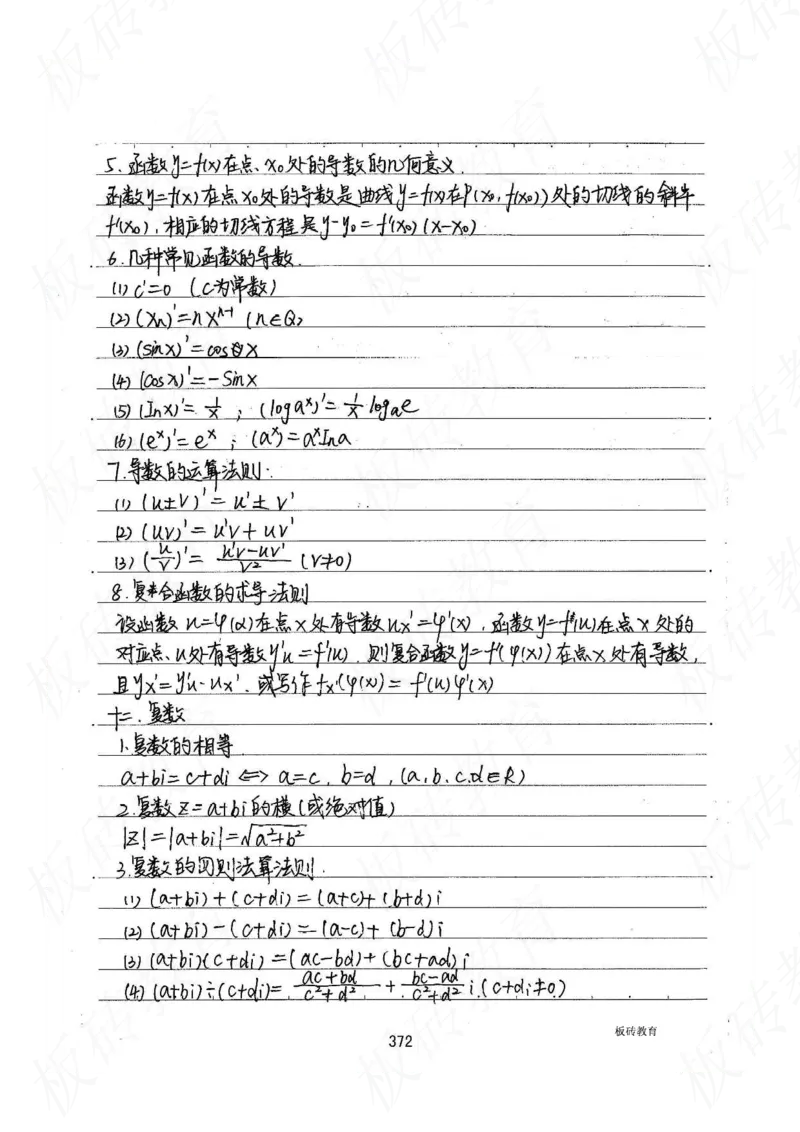 5.函数y=f(x)在点、x₀处的导数的几何意义.
函数y=f(x)在点x₀处的导数是曲线y=f(x)在P(x₀,f(x₀))处的切线的斜率
f'(x₀),相应的切线方程是y-y₀=f'(x₀)(x-x₀)
6.几种常见函数的导数.
(1) c'=0 (C为常数)
(2) (xn)'=nxⁿ⁻¹ (n∈Q)
(3) (sinx)'=cosx
(4) (cosx)'=-sinx
(5) (Inx)'=1/x ; (logaˣ)'=1/x logₐe
(6) (eˣ)'=eˣ ; (aˣ)=aˣIna
7.导数的运算法则:
(1) (u±v)'=u'±v'
(2) (uv)'=u'v+uv'
(3) (u/v)'=(u'v-uv')/v² (v≠0)
8.复合函数的求导法则
设函数u=φ(x)在点x处有导数ux'=φ'(x),函数y=f(u)在点x处的
对应点、u处有导数y'u=f'(u),则复合函数y=f(φ(x))在点x处有导数,
且yx'=y'u·ux',或写作fx'(φ(x))=f'(u)φ'(x)
十二.复数
1.复数的相等.
a+bi=c+di⇔a=c,b=d,(a,b,c,d∈R)
2.复数z=a+bi的模(或绝对值)
|z|=|a+bi|=√(a²+b²)
3.复数的四则法算法则.
(1) (a+bi)+(c+di)=(a+c)+(b+d)i
(2) (a+bi)-(c+di)=(a-c)+(b-d)i
(3) (a+bi)(c+di)=(ac-bd)+(bc+ad)i
(4) (a+bi)÷(c+di)=(ac+bd)/(c²+d²)+(bc-ad)/(c²+d²)i.(c+di≠0)
板砖教育
372